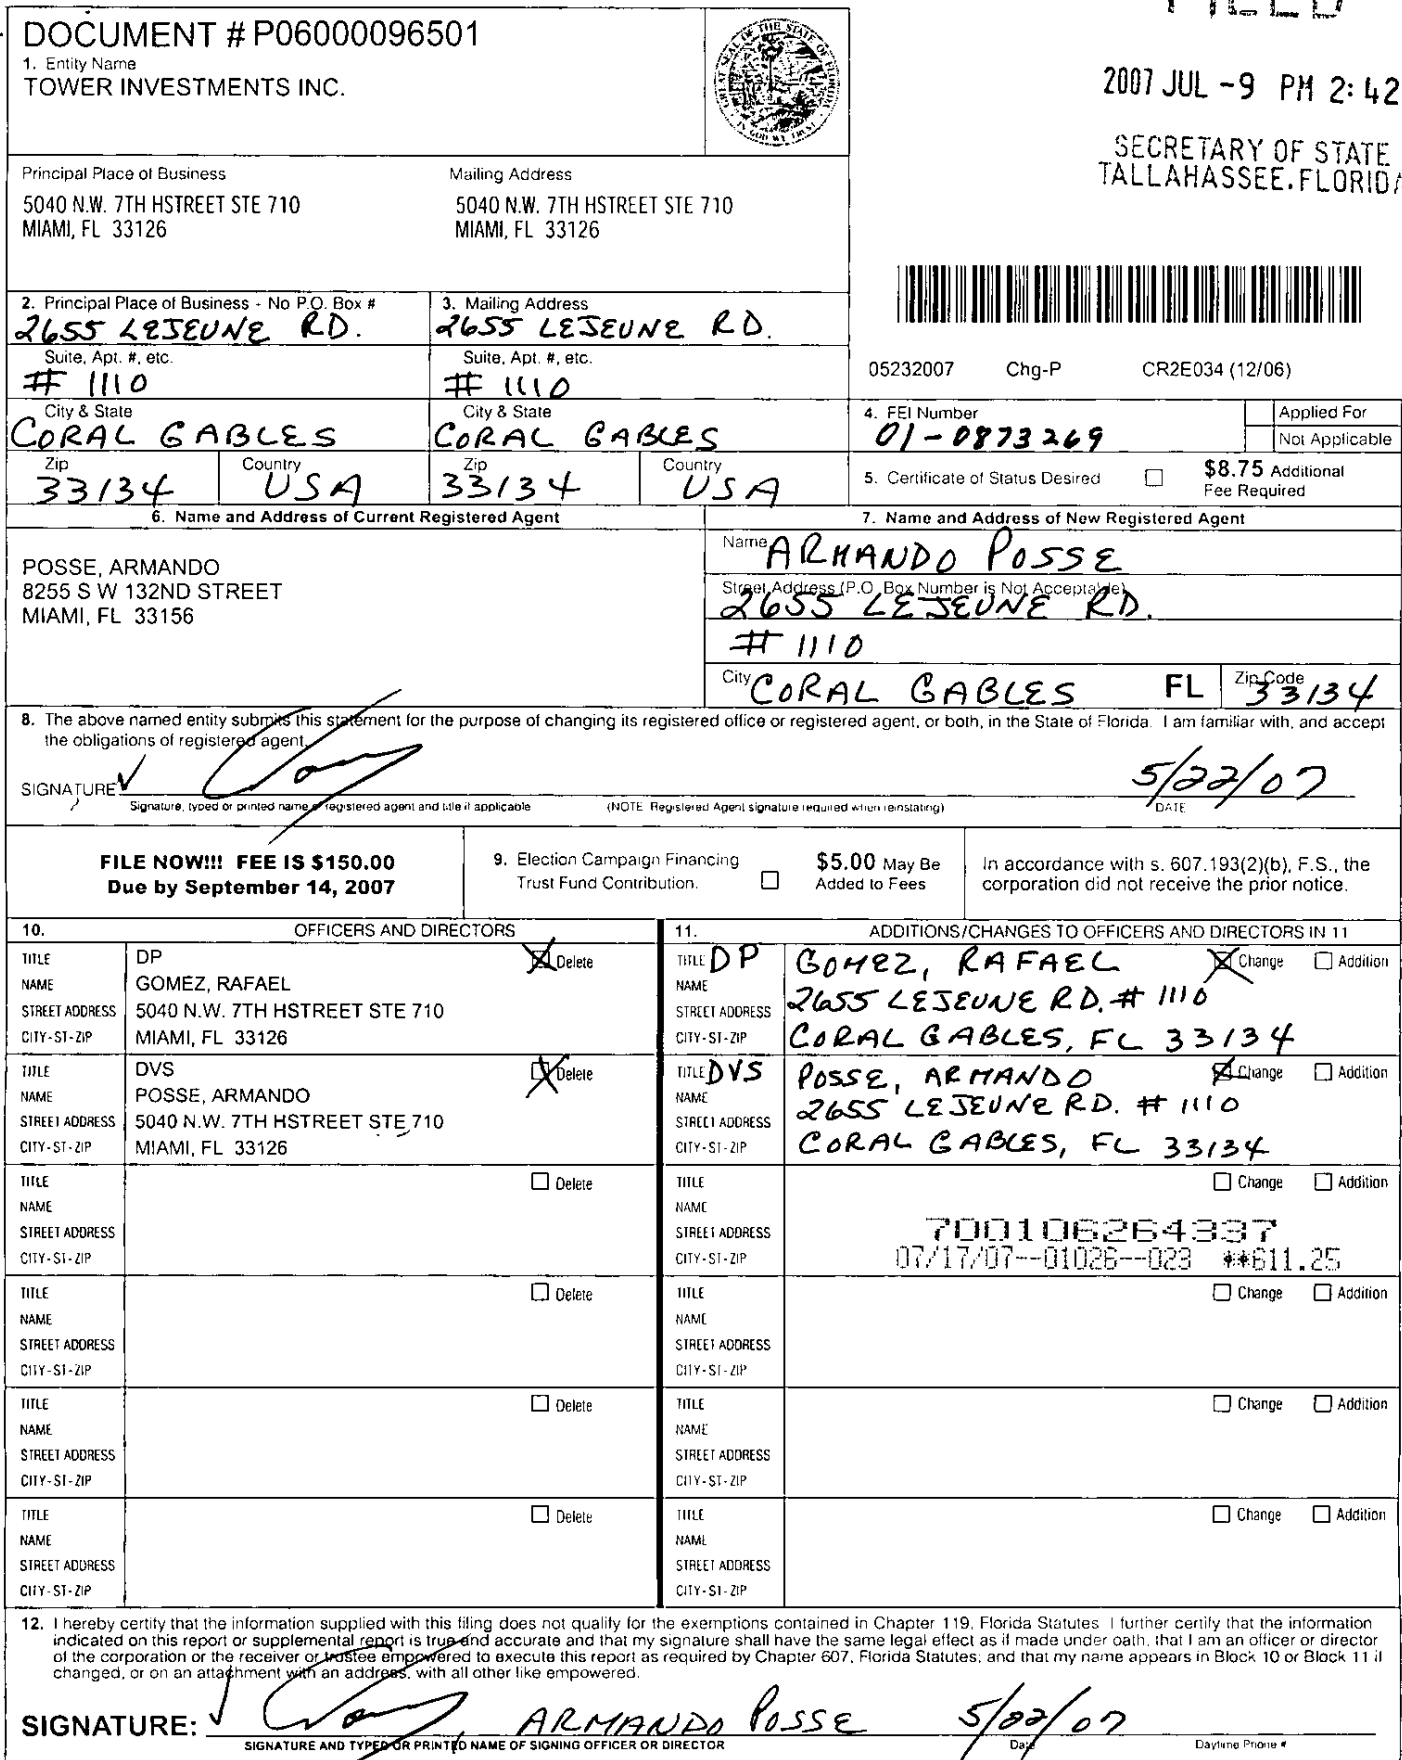 FILED
DOCUMENT # P06000096501
1. Entity Name
TOWER INVESTMENTS INC.
2007 JUL -9 PM 2:42
SECRETARY OF STATE
TALLAHASSEE, FLORIDA
Principal Place of Business
5040 N.W. 7TH HSTREET STE 710
MIAMI, FL 33126
Mailing Address
5040 N.W. 7TH HSTREET STE 710
MIAMI, FL 33126
2. Principal Place of Business - No P.O. Box #
2655 LEJEUNE RD.
3. Mailing Address
2655 LEJEUNE RD.
Suite, Apt. #, etc.
# 1110
Suite, Apt. #, etc.
# 1110
City & State
CORAL GABLES
City & State
CORAL GABLES
Zip
33134
Country
USA
Zip
33134
Country
USA
05232007 Chg-P CR2E034 (12/06)
4. FEI Number
01-0873269
Applied For
Not Applicable
5. Certificate of Status Desired
$8.75 Additional
Fee Required
6. Name and Address of Current Registered Agent
POSSE, ARMANDO
8255 S W 132ND STREET
MIAMI, FL 33156
7. Name and Address of New Registered Agent
Name ARMANDO POSSE
Street Address (P.O. Box Number is Not Acceptable)
2655 LEJEUNE RD.
# 1110
City CORAL GABLES FL Zip Code 33134
8. The above named entity submits this statement for the purpose of changing its registered office or registered agent, or both, in the State of Florida. I am familiar with, and accept
the obligations of registered agent.
SIGNATURE 5/22/07
Signature, typed or printed name of registered agent and title if applicable (NOTE Registered Agent signature required when reinstating) DATE
FILE NOW!!! FEE IS $150.00
Due by September 14, 2007
9. Election Campaign Financing
Trust Fund Contribution.
$5.00 May Be
Added to Fees
In accordance with s. 607.193(2)(b), F.S., the
corporation did not receive the prior notice.
10. OFFICERS AND DIRECTORS
TITLE DP Delete
NAME GOMEZ, RAFAEL
STREET ADDRESS 5040 N.W. 7TH HSTREET STE 710
CITY-ST-ZIP MIAMI, FL 33126
TITLE DVS Delete
NAME POSSE, ARMANDO
STREET ADDRESS 5040 N.W. 7TH HSTREET STE 710
CITY-ST-ZIP MIAMI, FL 33126
TITLE Delete
NAME
STREET ADDRESS
CITY-ST-ZIP
TITLE Delete
NAME
STREET ADDRESS
CITY-ST-ZIP
TITLE Delete
NAME
STREET ADDRESS
CITY-ST-ZIP
TITLE Delete
NAME
STREET ADDRESS
CITY-ST-ZIP
11. ADDITIONS/CHANGES TO OFFICERS AND DIRECTORS IN 11
TITLE DP GOMEZ, RAFAEL Change Addition
NAME
STREET ADDRESS 2655 LEJEUNE RD. # 1110
CITY-ST-ZIP CORAL GABLES, FL 33134
TITLE DVS POSSE, ARMANDO Change Addition
NAME
STREET ADDRESS 2655 LEJEUNE RD. # 1110
CITY-ST-ZIP CORAL GABLES, FL 33134
TITLE Change Addition
NAME
STREET ADDRESS 700106264337
CITY-ST-ZIP 07/17/07--01026--023 **611.25
TITLE Change Addition
NAME
STREET ADDRESS
CITY-ST-ZIP
TITLE Change Addition
NAME
STREET ADDRESS
CITY-ST-ZIP
TITLE Change Addition
NAME
STREET ADDRESS
CITY-ST-ZIP
12. I hereby certify that the information supplied with this filing does not qualify for the exemptions contained in Chapter 119, Florida Statutes I further certify that the information
indicated on this report or supplemental report is true and accurate and that my signature shall have the same legal effect as if made under oath, that I am an officer or director
of the corporation or the receiver or trustee empowered to execute this report as required by Chapter 607, Florida Statutes; and that my name appears in Block 10 or Block 11 if
changed, or on an attachment with an address, with all other like empowered.
SIGNATURE: ARMANDO POSSE 5/22/07
SIGNATURE AND TYPED OR PRINTED NAME OF SIGNING OFFICER OR DIRECTOR Date Daytime Phone #